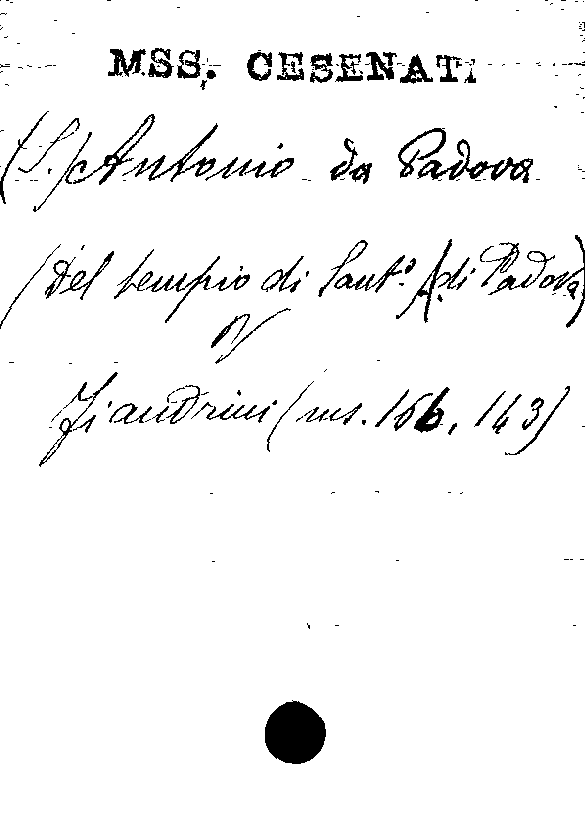 MSS. CESENATI
(S.) Antonio da Padova
(Del tempio di Sant.º A. di Padova)
V
Ziandrini (ms. 166, 143)